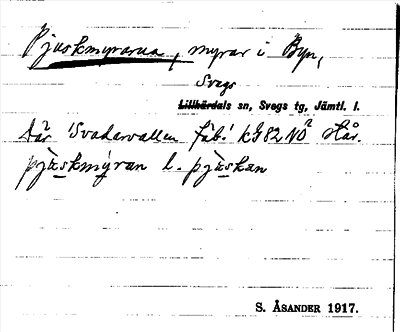 Pjuskmyrarna, myrar i Byn,
Svegs
Lillhärdals sn, Svegs tg, Jämtl. l.
där 'Svadarvallen fäb.' kg 82 NO Hår.
pjuskmýran l. pjuskan
S. ÅSANDER 1917.